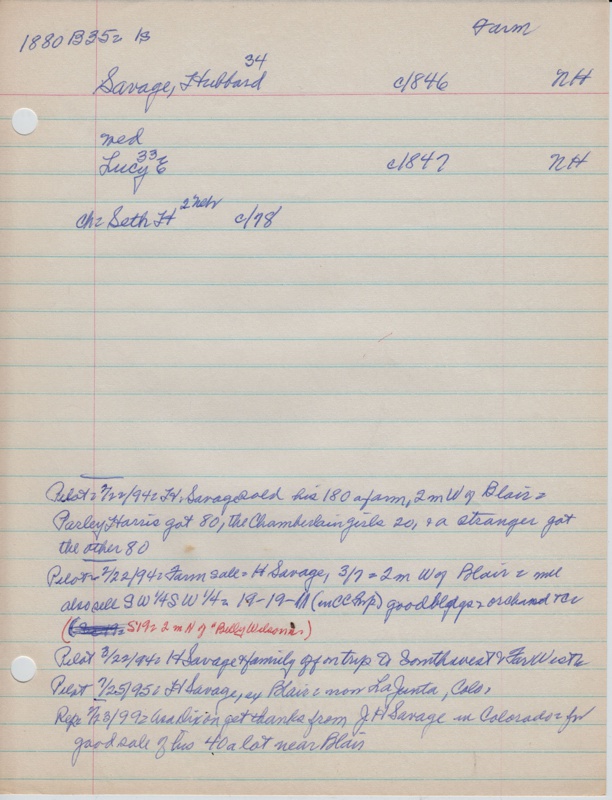 1880 B35= B
Farm
Savage, Hubbard 34 c/846 NH
med
Lucy E 33 c/847 NH
ch= Seth H 2 Neb c/78
Pilot= 2/22/94= H. Savage sold his 180 a farm, 2 m W of Blair=
Parley Harris got 80, the Chamberlain girls 20, & a stranger got
the other 80
Pilot= 2/22/94= Farm sale= H Savage, 3/7= 2 m W of Blair=
also sell SW 1/4 SW 1/4= 19-19-11 (in CC Twp) good bldgs= orchard &c
( S19= 2 m N of "Billy Wilsons")
Pilot 3/22/94= H Savage & family off on trip to Southwest & Far West
Pilot 7/25/95= H Savage, ex Blair= now La Junta, Colo.
Rep= /99= Dixon get thanks from J H Savage in Colorado= for
good sale of his 40 a lot near Blair